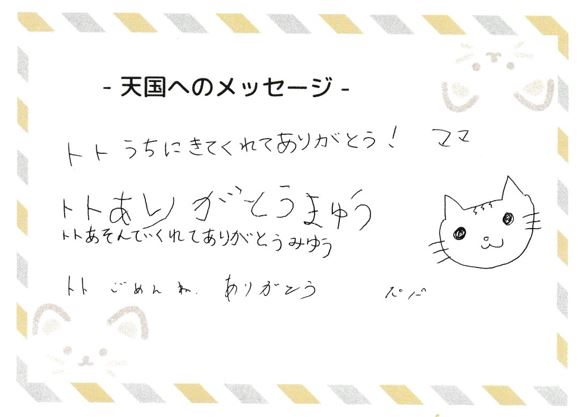 - 天国へのメッセージ -
トト うちにきてくれてありがとう! ママ
トトありがとうまゆう
トトあそんでくれてありがとうみゆう
トト ごめんね. ありがとう パパ